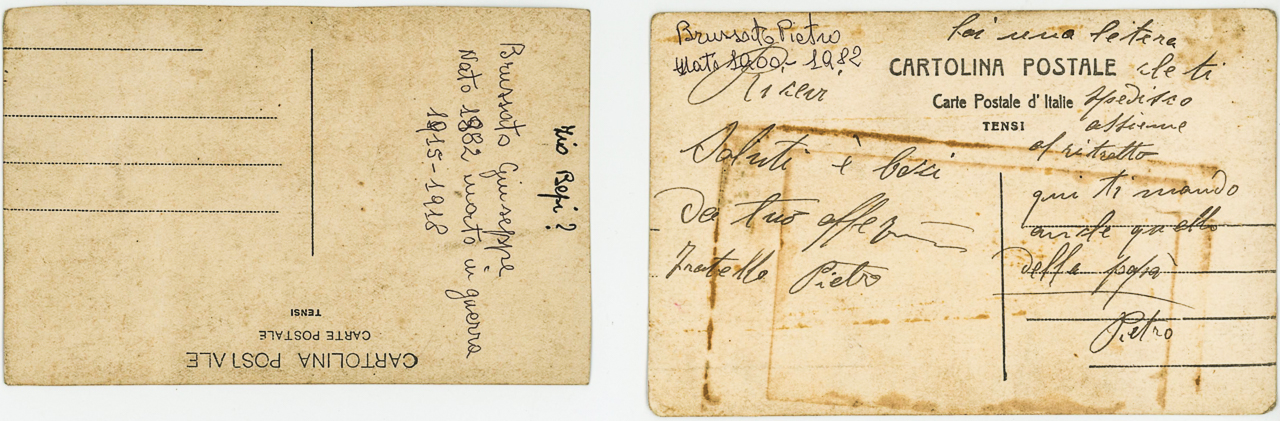 Zio Bepi?
Brussato Giuseppe
Nato 1882 morto in guerra
1915-1918
CARTOLINA POSTALE
CARTE POSTALE
TENSI
Brussato Pietro
Nato 1900 - 1982
CARTOLINA POSTALE
Carte Postale d'Italie
TENSI
Ricevi
Saluti è baci
Da tuo
Fratello Pietro
una letera
che ti
spedisco
assieme
al ritratto
qui ti mando
anche quello
della papà
Pietro